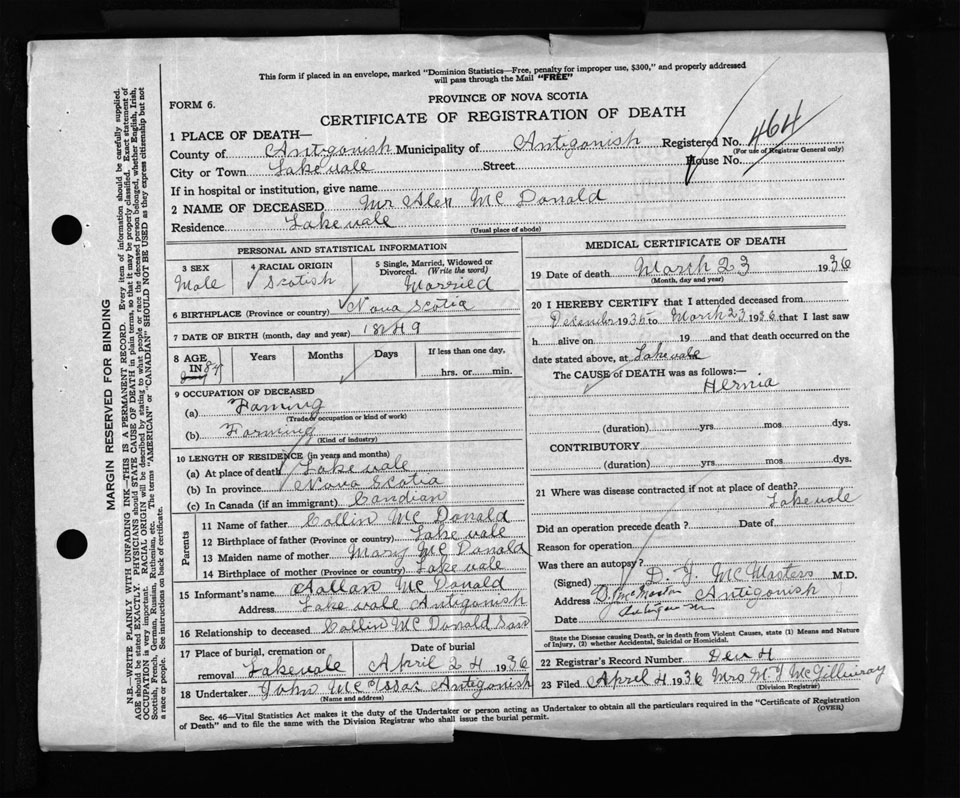 This form if placed in an envelope, marked "Dominion Statistics—Free, penalty for improper use, $300," and properly addressed
will pass through the Mail "FREE"
PROVINCE OF NOVA SCOTIA
FORM 6.
CERTIFICATE OF REGISTRATION OF DEATH
1 PLACE OF DEATH—
Registered No. 464
(For use of Registrar General only)
County of Antigonish Municipality of Antigonish
City or Town Lakevale Street House No.
If in hospital or institution, give name
2 NAME OF DECEASED Mr Alex McDonald
Residence Lakevale
(Usual place of abode)
PERSONAL AND STATISTICAL INFORMATION
3 SEX 4 RACIAL ORIGIN 5 Single, Married, Widowed or
Divorced. (Write the word)
Male Scotish Married
6 BIRTHPLACE (Province or country) Nova Scotia
7 DATE OF BIRTH (month, day and year) 1849
8 AGE Years Months Days If less than one day,
IN 87
hrs. or min.
9 OCCUPATION OF DECEASED
(a) Faming
(Trade, occupation or kind of work)
(b) Farming
(Kind of industry)
10 LENGTH OF RESIDENCE (in years and months)
(a) At place of death Lakevale
(b) In province Nova Scotia
(c) In Canada (if an immigrant) Candian
Parents
11 Name of father Collin McDonald
12 Birthplace of father (Province or country) Lakevale
13 Maiden name of mother Mary McDonald
14 Birthplace of mother (Province or country) Lakevale
15 Informant's name Aallan McDonald
Address Lakevale Antigonish
16 Relationship to deceased Collin McDonald Son
17 Place of burial, cremation or Date of burial
removal Lakevale April 24 1936
18 Undertaker John McIssac Antigonish
(Name and address)
MEDICAL CERTIFICATE OF DEATH
19 Date of death March 23 1936
(Month, day and year)
20 I HEREBY CERTIFY that I attended deceased from
December 1935 to March 23 1936 that I last saw
h alive on 19 and that death occurred on the
date stated above, at Lakevale
The CAUSE of DEATH was as follows:—
Hernia
(duration) yrs mos dys.
CONTRIBUTORY
(duration) yrs. mos. dys.
21 Where was disease contracted if not at place of death?
Lakevale
Did an operation precede death ? Date of
Reason for operation
Was there an autopsy?
(Signed) D. J. McMasters M.D.
Address Antigonish
Date
State the Disease causing Death, or in death from Violent Causes, state (1) Means and Nature
of Injury, (2) whether Accidental, Suicidal or Homicidal.
22 Registrar's Record Number
23 Filed April 4 1936 Mrs M J McGillivray
(Division Registrar)
Sec. 46—Vital Statistics Act makes it the duty of the Undertaker or person acting as Undertaker to obtain all the particulars required in the "Certificate of Registration
of Death" and to file the same with the Division Registrar who shall issue the burial permit.
(OVER)
MARGIN RESERVED FOR BINDING
N.B.—WRITE PLAINLY WITH UNFADING INK—THIS IS A PERMANENT RECORD. Every item of information should be carefully supplied.
AGE should be stated EXACTLY. PHYSICIANS should STATE CAUSE OF DEATH in plain terms, so that it may be properly classified. Exact statement of
OCCUPATION is very important. RACIAL ORIGIN will be described by stating to what people or race the deceased person belonged, whether English, Irish,
Scottish, French, German, Russian, Ruthenian, etc. The terms "AMERICAN" or "CANADIAN" SHOULD NOT BE USED as they express citizenship but not
a race or people. See instructions on back of certificate.